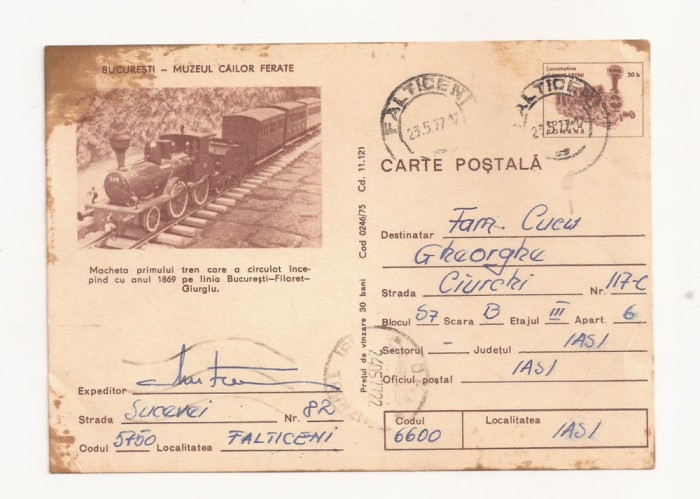 BUCUREȘTI – MUZEUL CĂILOR FERATE
Macheta primului tren care a circulat înce-
pînd cu anul 1869 pe linia București–Filaret–
Giurgiu.
Expeditor
Strada Sucevei Nr. 82
Codul 5750 Localitatea FALTICENI
Cod 0246/75 Cd. 11.121
Prețul de vînzare 30 bani
FALTICENI
23.5.77.17
FALTICENI
Locomotiva
30 b
ROMANA
CARTE POȘTALĂ
Destinatar Fam. Cucu
Gheorghe
Strada Ciurchi Nr. 117-C
Blocul S7 Scara B Etajul III Apart. 6
Sectorul – Județul IASI
Oficiul poștal IASI
Codul 6600 Localitatea IASI